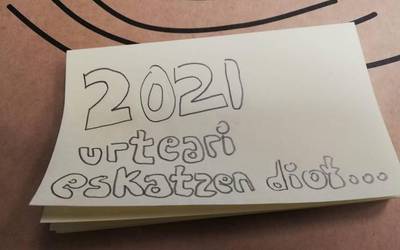 2021
urteari
eskatzen diot...